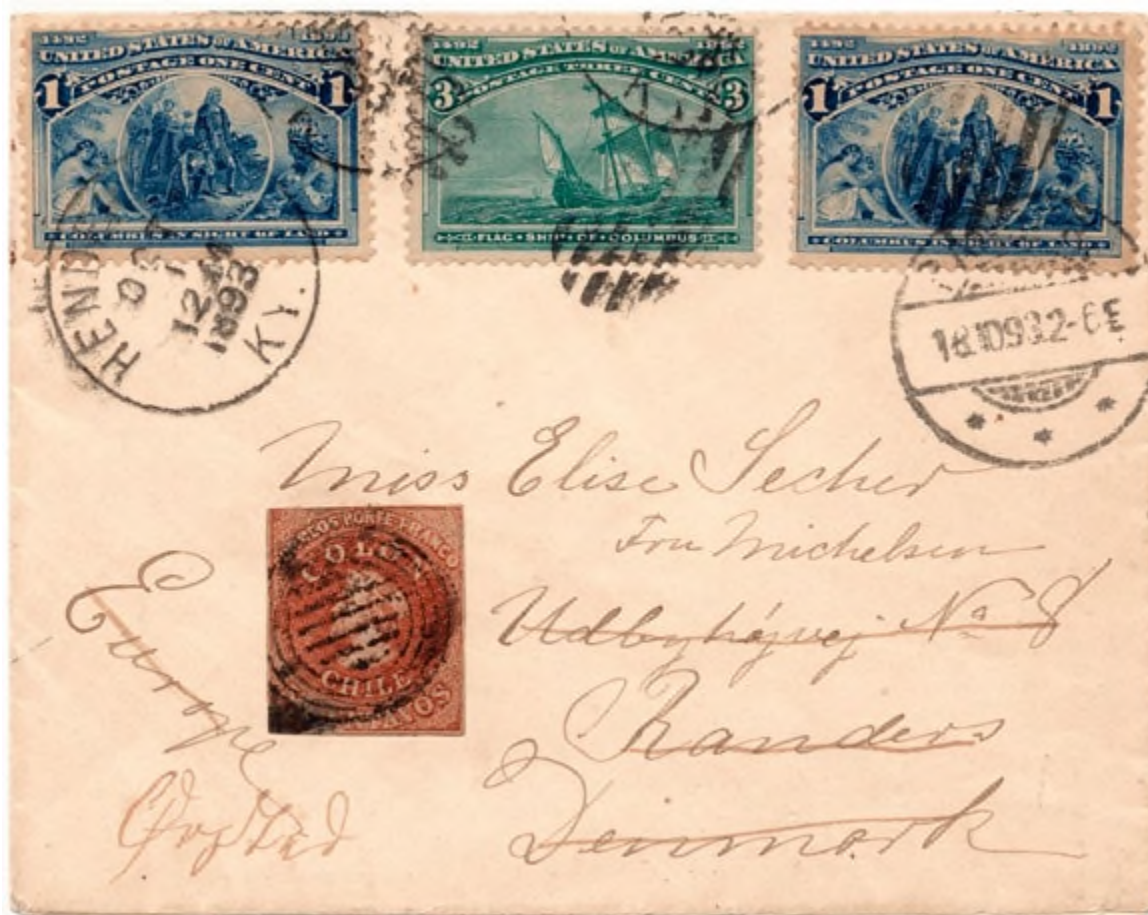 1492 UNITED STATES OF AMERICA 1892
POSTAGE ONE CENT
1 1
COLUMBUS IN SIGHT OF LAND
1492 UNITED STATES OF AMERICA 1892
POSTAGE THREE CENTS
3 3
FLAG - SHIP OF COLUMBUS
1492 UNITED STATES OF AMERICA 1892
POSTAGE ONE CENT
1 1
COLUMBUS IN SIGHT OF LAND
12 AM
1893
KY.
18.10.93.2-6E
Miss Elise Secher
Fru Michelsen
Udbyhøjvej No 8
Randers
Denmark
Europe
PORTE FRANCO
COLON
CHILE